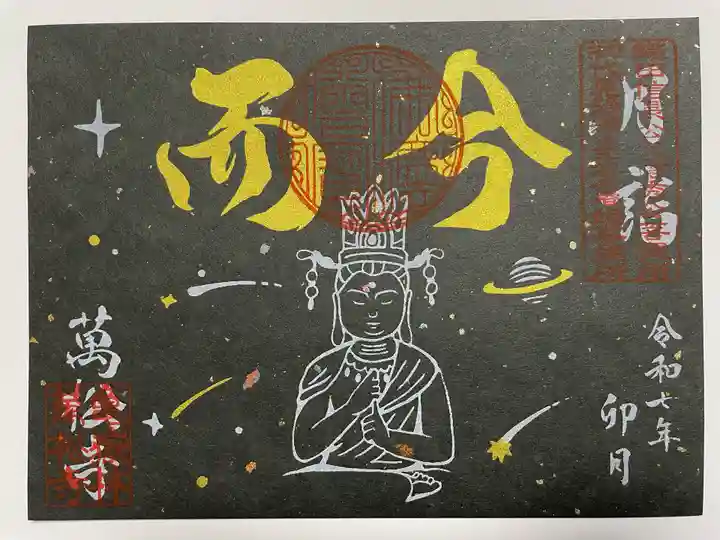 月詣
而今
令和七年
卯月
萬松寺